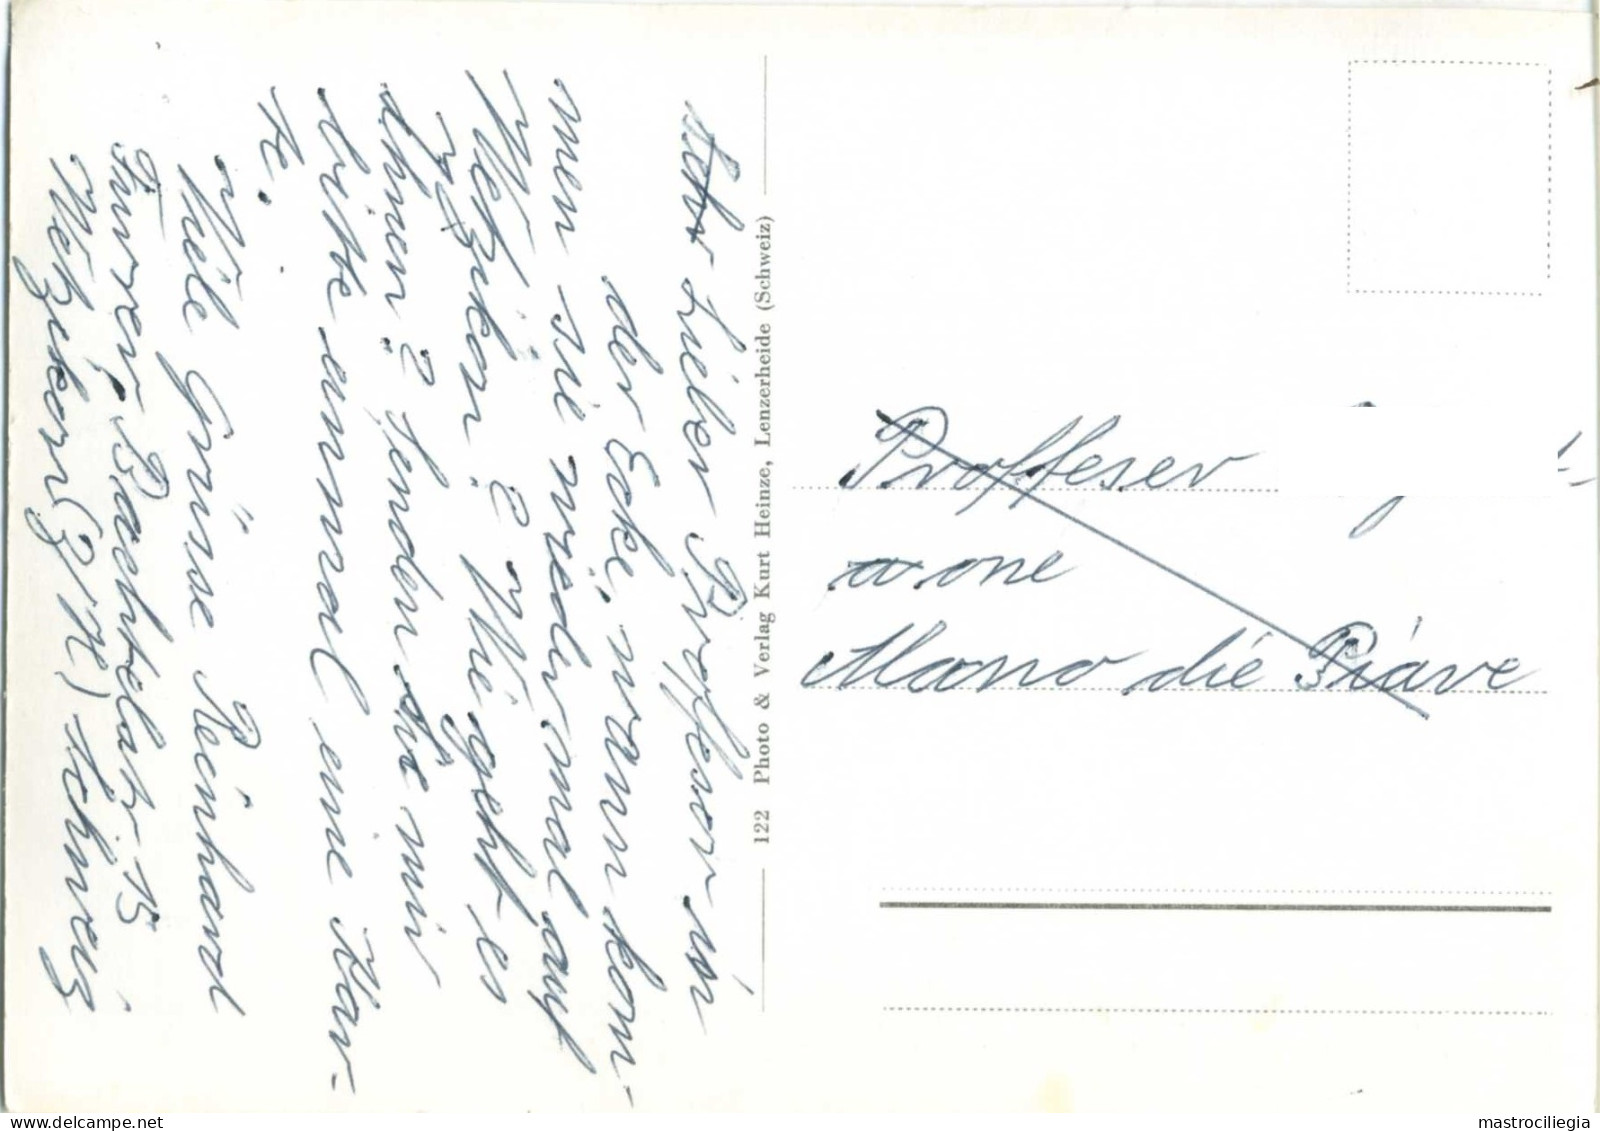 Sehr Lieber Proffesor in
der Ecke, wann kom-
men sie wieder mal auf
Wetzikon? Wie geht es
Ihnen? Senden sie mir
bitte einmal eine Kar-
te.
Viele Grüsse Reinhard
Furrer, Bachtelstr. 15
Wetzikon (ZH) Schweiz
122 Photo & Verlag Kurt Heinze, Lenzerheide (Schweiz)
Proffeser
one
Mano die Piave
mastrociliegia